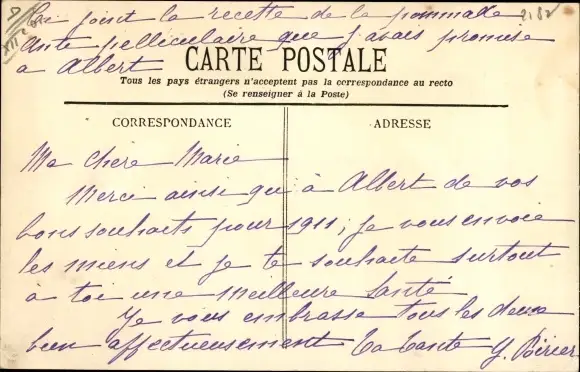 Ci joint la recette de la pommade
Anti pelliculaire que j'avais promise
à Albert
CARTE POSTALE
Tous les pays étrangers n'acceptent pas la correspondance au recto
(Se renseigner à la Poste)
CORRESPONDANCE
ADRESSE
Ma chère Marie
Merci ainsi qu'à Albert de vos
bons souhaits pour 1911, je vous envoie
les miens et je te souhaite surtout
à toi une meilleure santé
Je vous embrasse tous les deux
bien affectueusement ta tante Y. Poirier